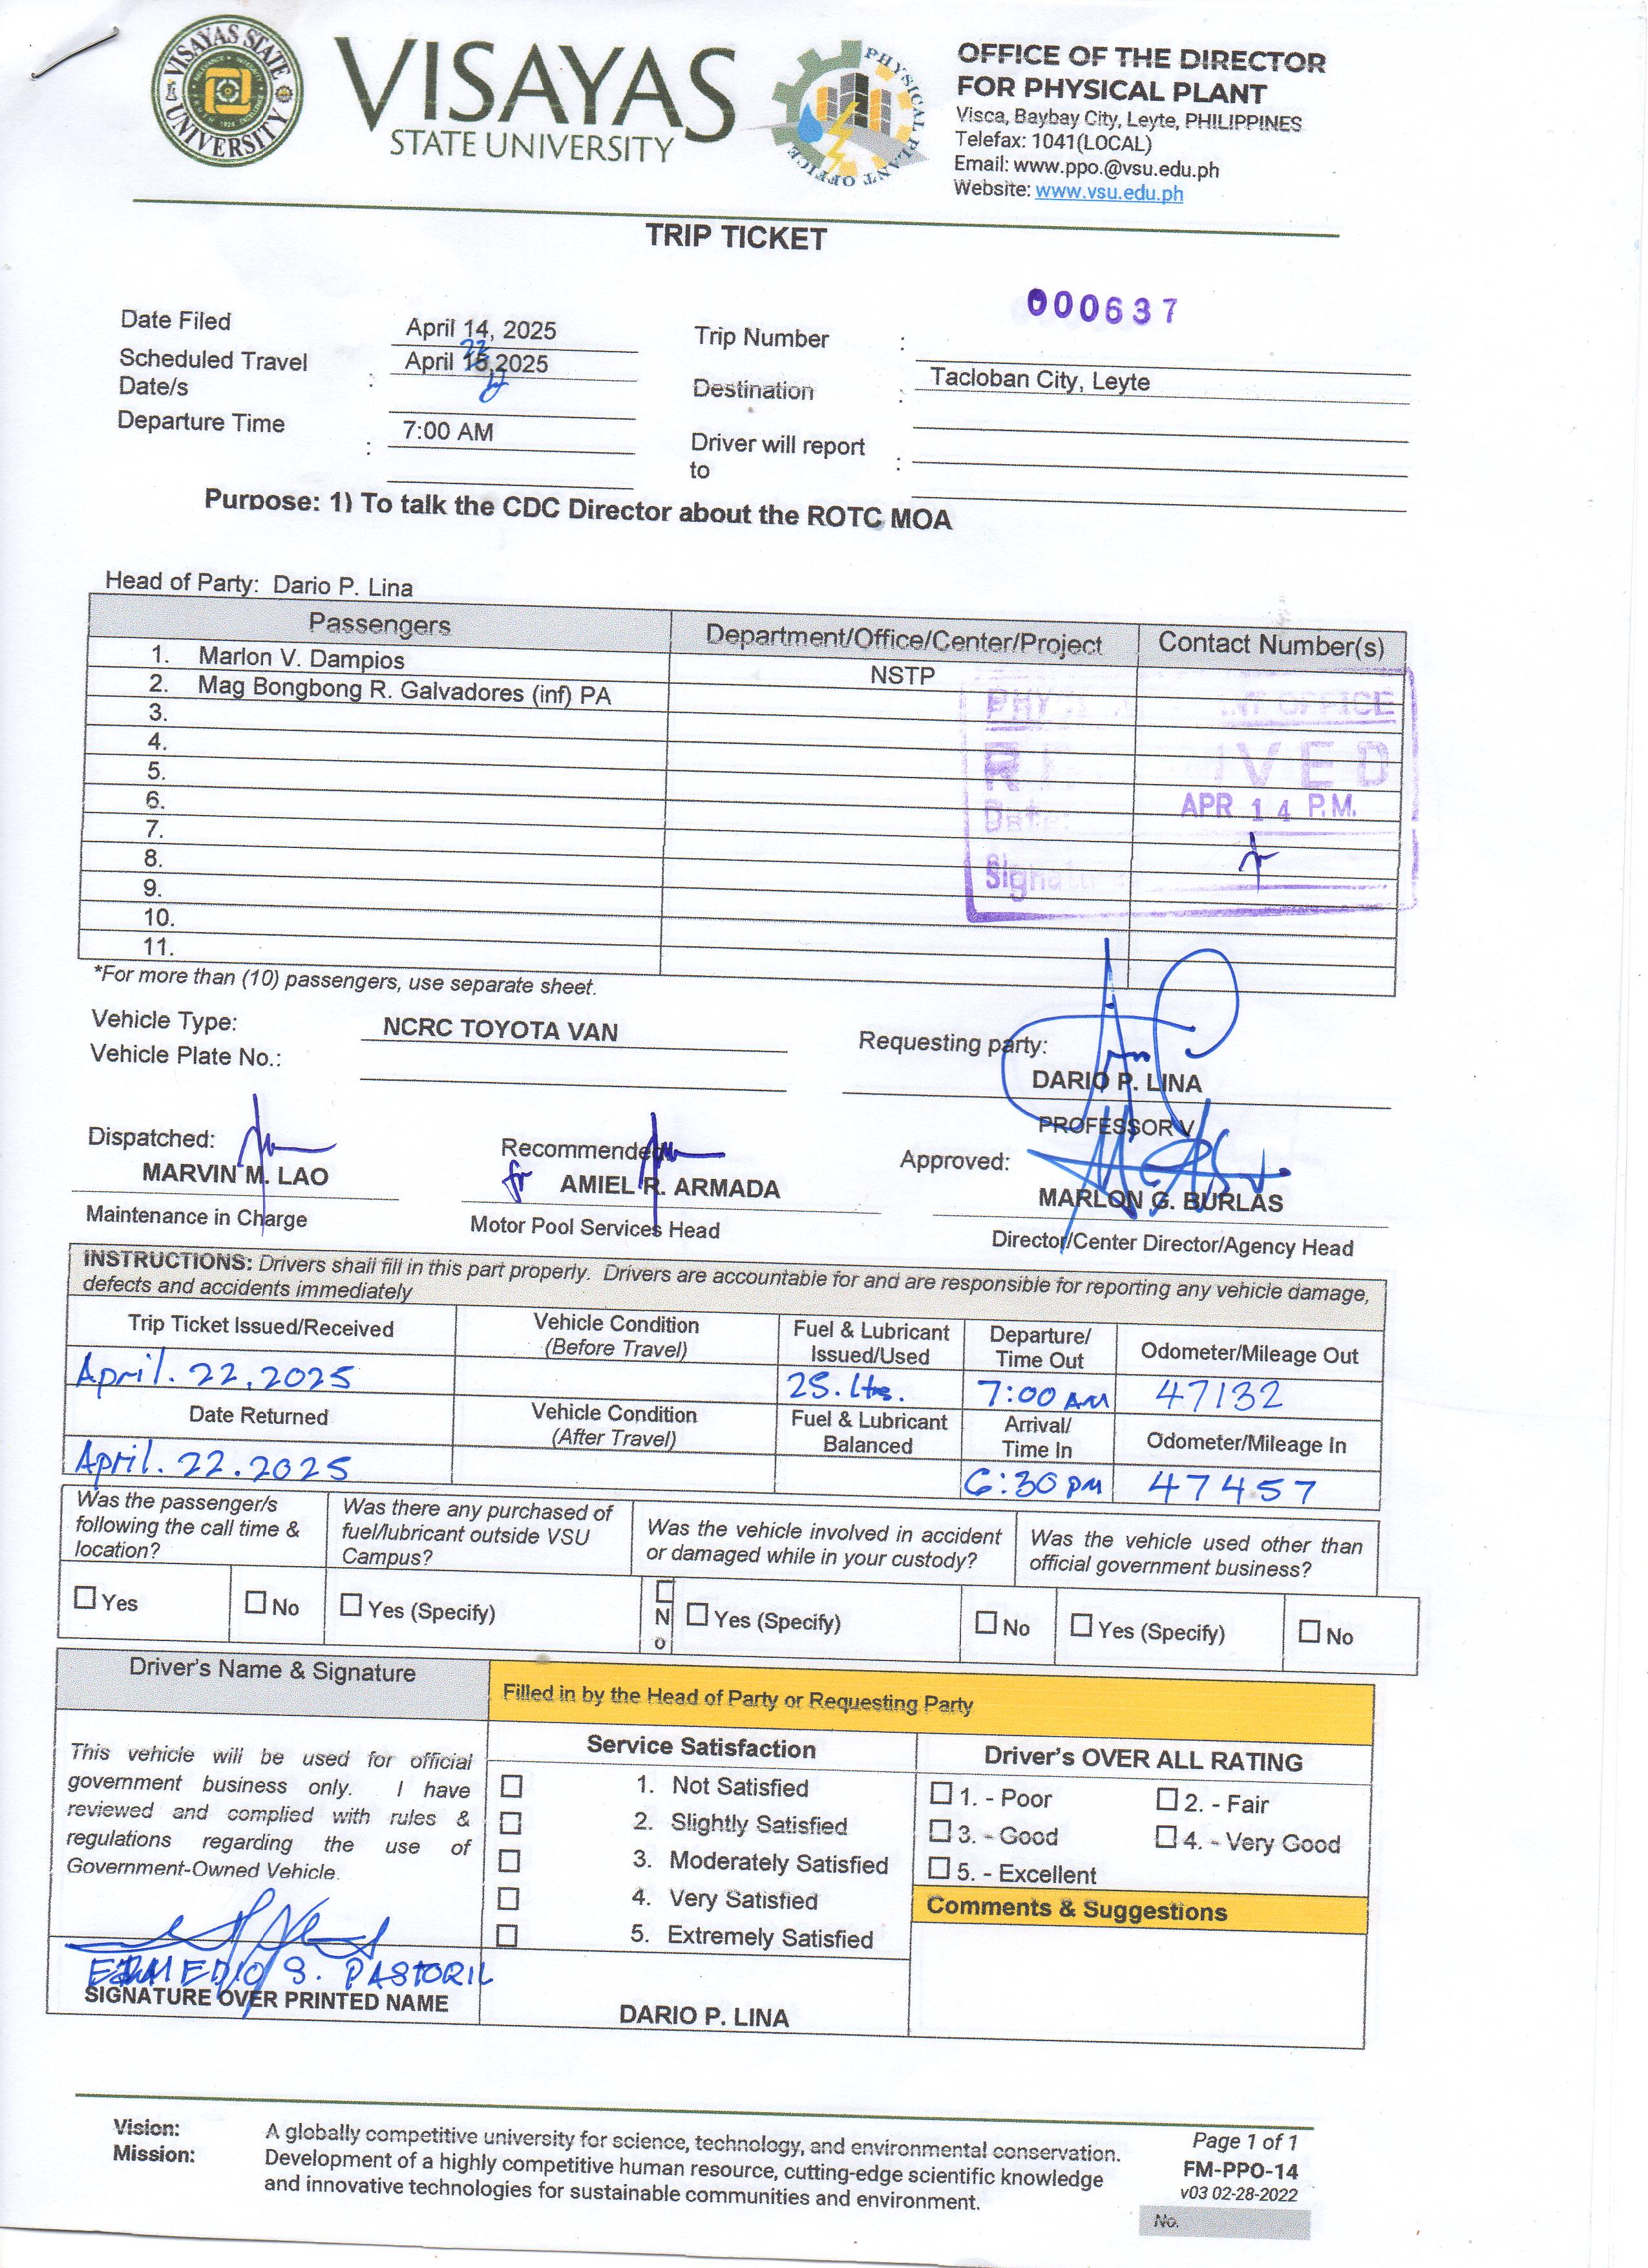 VISAYAS STATE UNIVERSITY
VISAYAS
STATE UNIVERSITY
PHYSICAL PLANT OFFICE
OFFICE OF THE DIRECTOR
FOR PHYSICAL PLANT
Visca, Baybay City, Leyte, PHILIPPINES
Telefax: 1041(LOCAL)
Email: www.ppo.@vsu.edu.ph
Website: www.vsu.edu.ph
TRIP TICKET
000637
Date Filed April 14, 2025 Trip Number :
Scheduled Travel Date/s : April 22,2025 Destination : Tacloban City, Leyte
Departure Time : 7:00 AM Driver will report to :
Purpose: 1) To talk the CDC Director about the ROTC MOA
Head of Party: Dario P. Lina
Passengers Department/Office/Center/Project Contact Number(s)
1. Marlon V. Dampios NSTP
2. Mag Bongbong R. Galvadores (inf) PA
3.
4.
5.
6.
7.
8.
9.
10.
11.
APR 14 P.M.
*For more than (10) passengers, use separate sheet.
Vehicle Type: NCRC TOYOTA VAN
Vehicle Plate No.:
Requesting party:
DARIO P. LINA
PROFESSOR V
Dispatched: Recommended Approved:
MARVIN M. LAO for AMIEL R. ARMADA MARLON G. BURLAS
Maintenance in Charge Motor Pool Services Head Director/Center Director/Agency Head
INSTRUCTIONS: Drivers shall fill in this part properly. Drivers are accountable for and are responsible for reporting any vehicle damage,
defects and accidents immediately
Trip Ticket Issued/Received Vehicle Condition (Before Travel) Fuel & Lubricant Issued/Used Departure/ Time Out Odometer/Mileage Out
April. 22.2025 25. ltrs. 7:00 AM 47132
Date Returned Vehicle Condition (After Travel) Fuel & Lubricant Balanced Arrival/ Time In Odometer/Mileage In
April. 22.2025 6:30 PM 47457
Was the passenger/s following the call time & location? Was there any purchased of fuel/lubricant outside VSU Campus? Was the vehicle involved in accident or damaged while in your custody? Was the vehicle used other than official government business?
Yes No Yes (Specify) No Yes (Specify) No Yes (Specify) No
Driver's Name & Signature
Filled in by the Head of Party or Requesting Party
This vehicle will be used for official
government business only. I have
reviewed and complied with rules &
regulations regarding the use of
Government-Owned Vehicle.
Service Satisfaction
1. Not Satisfied
2. Slightly Satisfied
3. Moderately Satisfied
4. Very Satisfied
5. Extremely Satisfied
Driver's OVER ALL RATING
1. - Poor 2. - Fair
3. - Good 4. - Very Good
5. - Excellent
Comments & Suggestions
S. PASTORIL
SIGNATURE OVER PRINTED NAME
DARIO P. LINA
Vision: A globally competitive university for science, technology, and environmental conservation.
Mission: Development of a highly competitive human resource, cutting-edge scientific knowledge
and innovative technologies for sustainable communities and environment.
Page 1 of 1
FM-PPO-14
v03 02-28-2022
No.